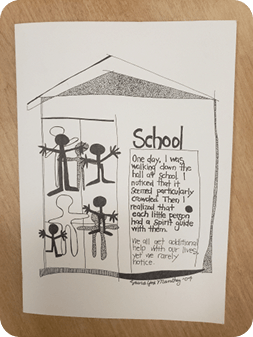 School
One day, I was
walking down the
hall of school. I
noticed that it
seemed particularly
crowded. Then I
realized that
each little person
had a spirit guide
with them.
We all get additional
help with our lives,
yet we rarely
notice.